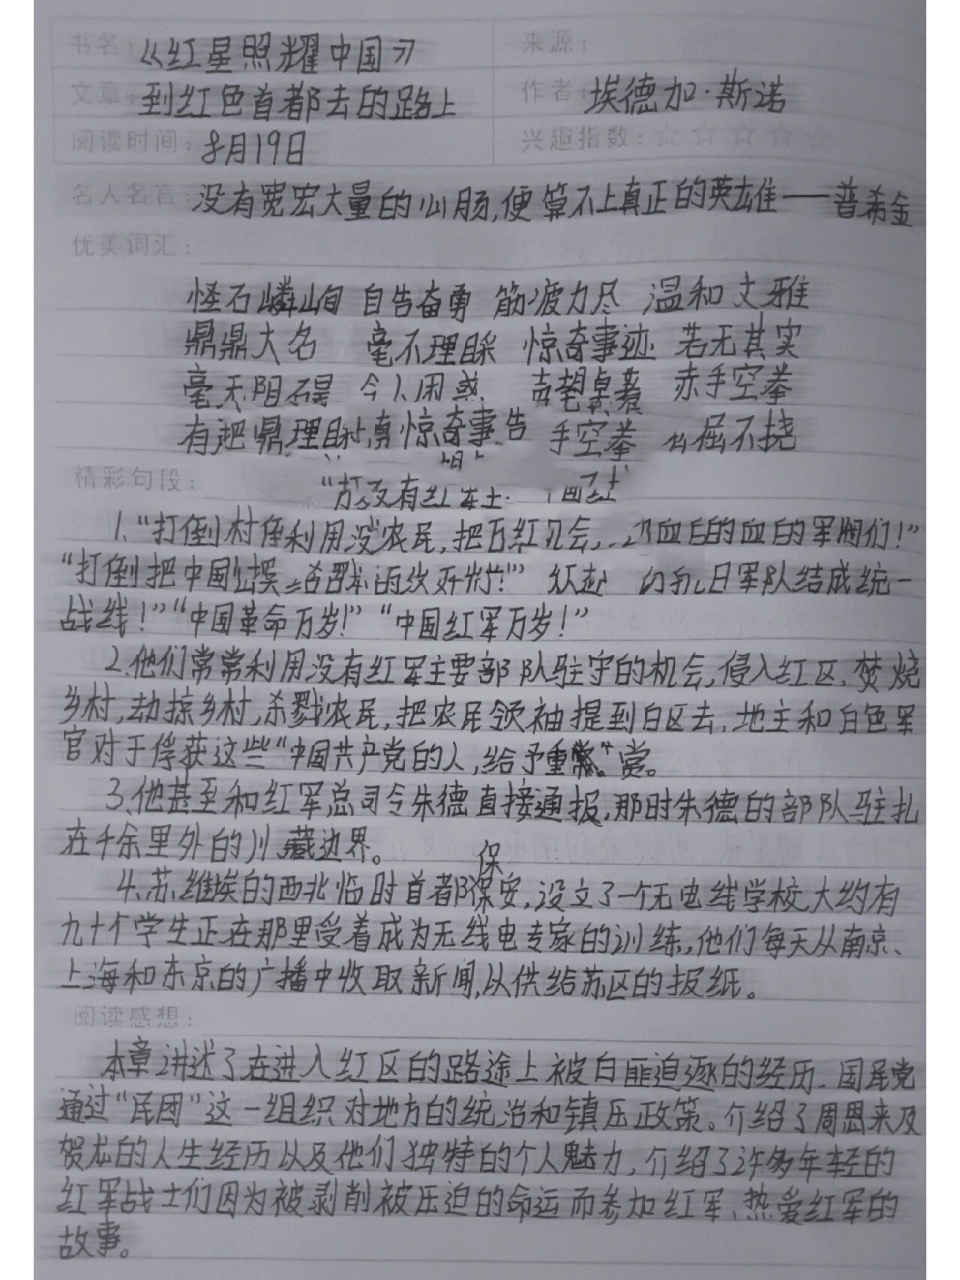 书名:《红星照耀中国》 来源:
文章: 到红色首都去的路上 作者: 埃德加·斯诺
阅读时间: 8月19日 兴趣指数:☆☆☆☆☆
名人名言: 没有宽宏大量的心肠,便算不上真正的英雄——普希金
优美词汇:
怪石嶙峋 自告奋勇 筋疲力尽 温和文雅
鼎鼎大名 毫不理睬 惊奇事迹 若无其实
毫无阻碍 令人困惑 声望卓著 赤手空拳
惊奇事 手空拳 屈不挠
精彩句段:
有红军
1.“打倒 利用没 农民,把 军阀们!”
“打倒把中国 日军队结成统一
战线!”“中国革命万岁!”“中国红军万岁!”
2.他们常常利用没有红军主要部队驻守的机会,侵入红区,焚烧
乡村,劫掠乡村,杀戮农民,把农民领袖提到白区去,地主和白色军
官对于俘获这些“中国共产党的人,给予重 赏。
3.他甚至和红军总司令朱德直接通报,那时朱德的部队驻扎
在千余里外的川藏边界。
保
4.苏维埃的西北临时首都保安,设立了一个无电线学校,大约有
九十个学生正在那里受着成为无线电专家的训练,他们每天从南京、
上海和东京的广播中收取新闻,从供给苏区的报纸。
阅读感想:
本章讲述了在进入红区的路途上被白匪追逐的经历、国民党
通过“民团”这一组织对地方的统治和镇压政策。介绍了周恩来及
贺龙的人生经历以及他们独特的个人魅力,介绍了许多年轻的
红军战士们因为被剥削被压迫的命运而参加红军、热爱红军的
故事。